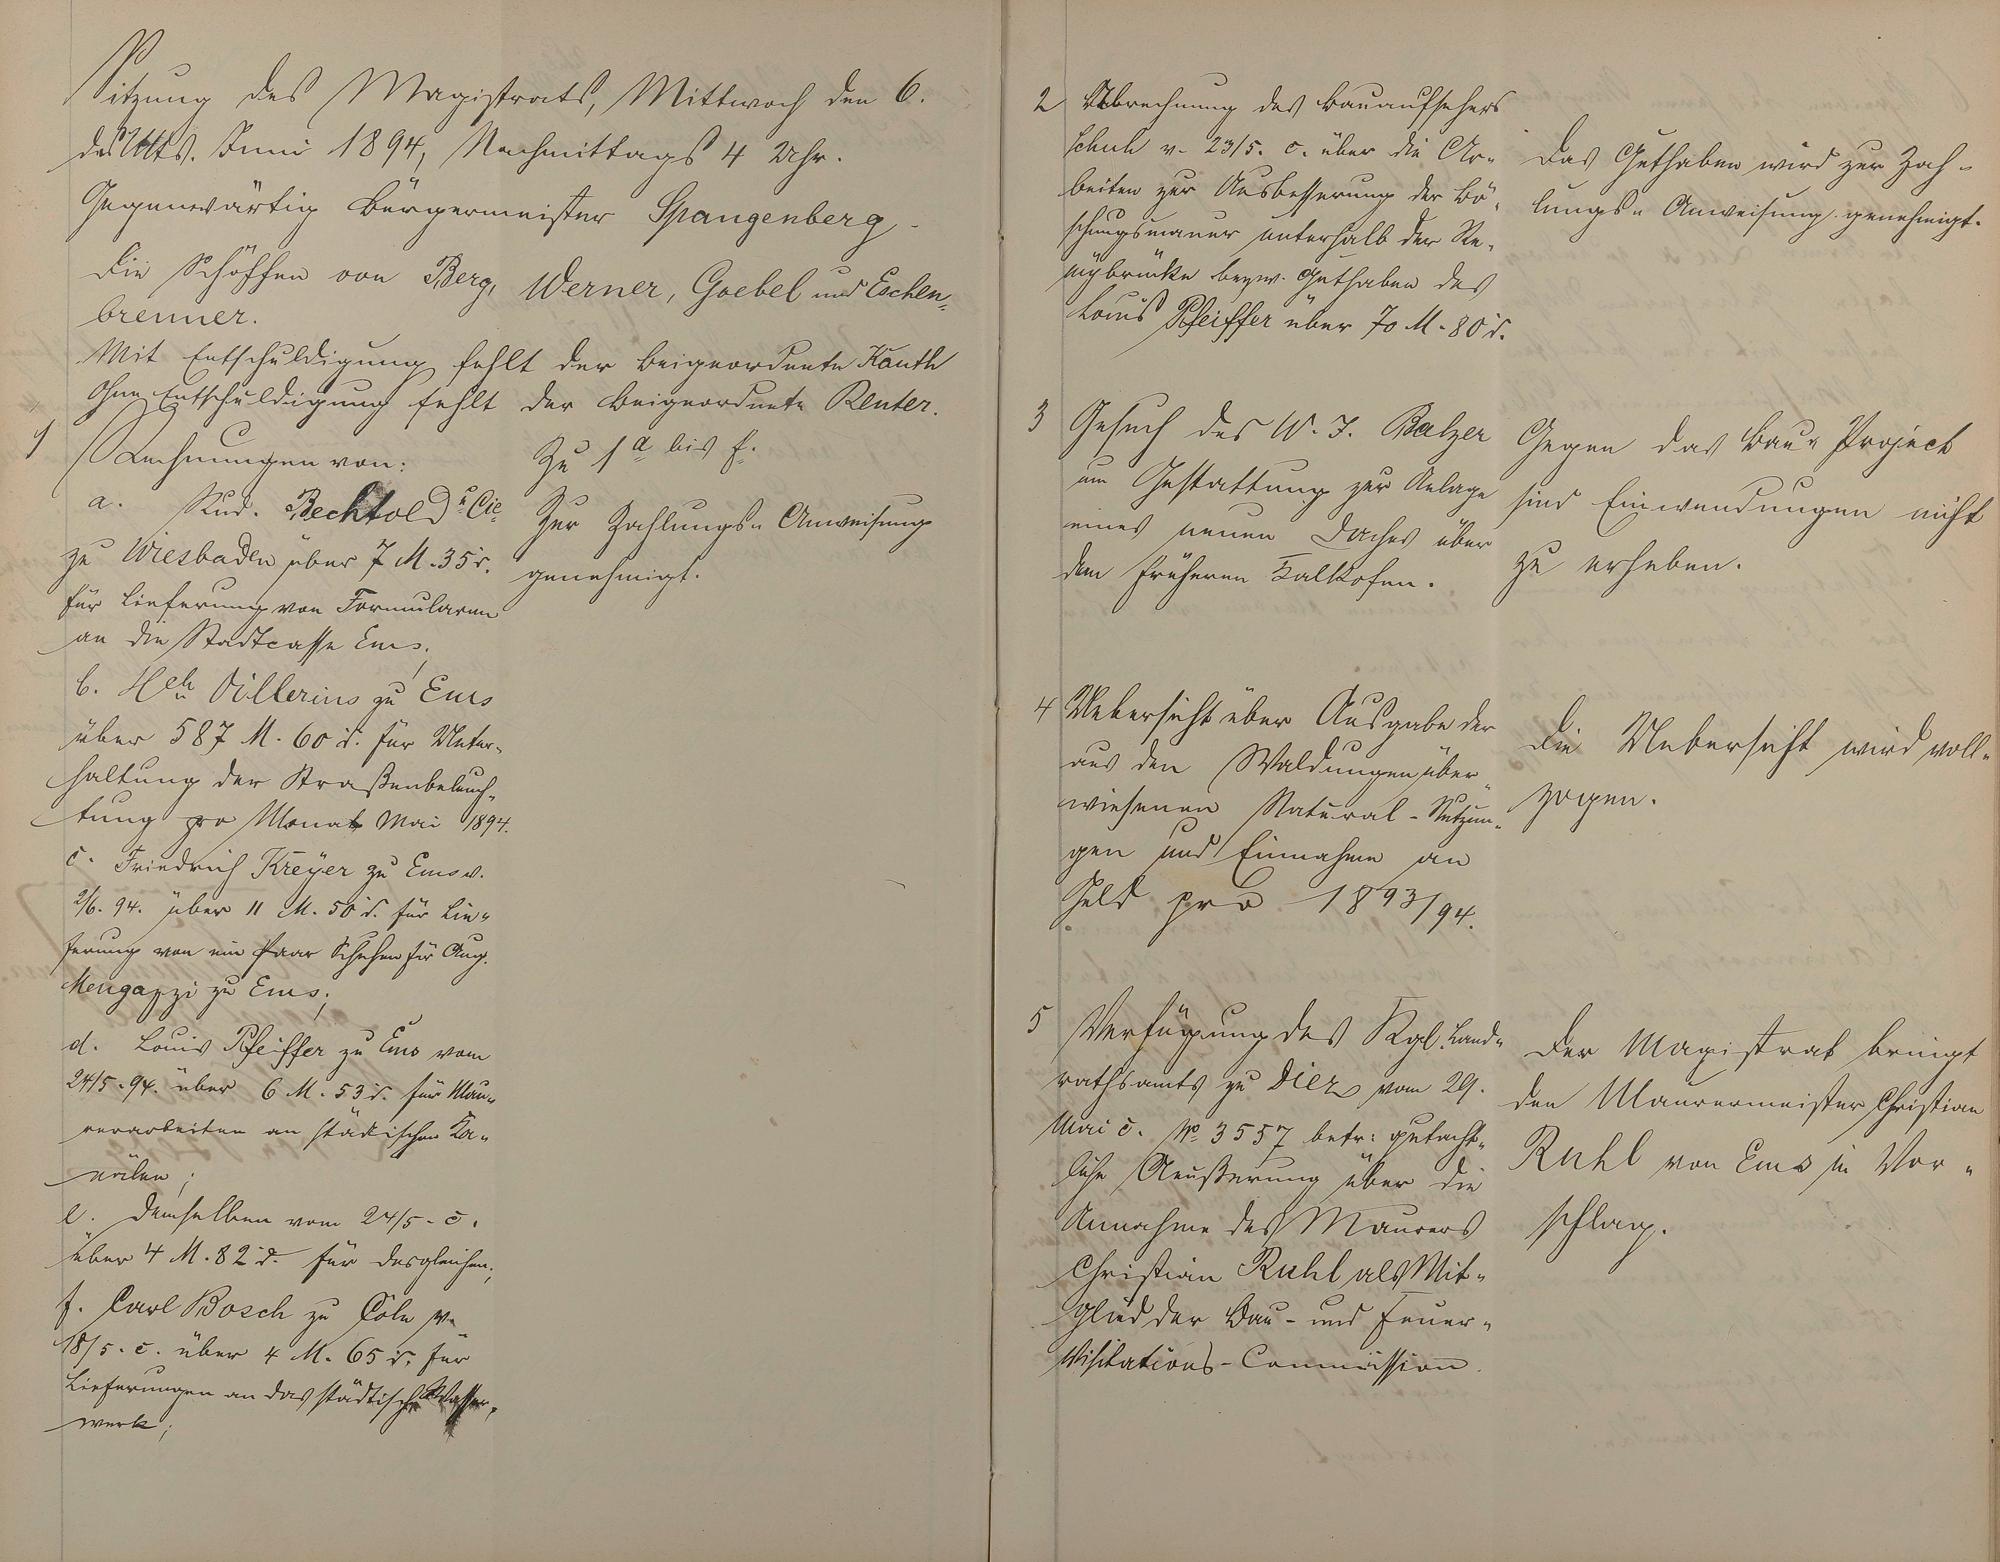 Sitzung des Magistrats, Mittwoch den 6.
des Mts. Juni 1894, Nachmittags 4 Uhr.
Gegenwärtig Bürgermeister Spangenberg.
Die Schöffen von Berg, Werner, Goebel und Eschen-
brenner.
Mit Entschuldigung fehlt der Beigeordnete Kauth
Ohne Entschuldigung fehlt der Beigeordnete Reuter.
1
Rechnungen von:
a. Rud. Bechtold & Cie
zu Wiesbaden über 7 M. 35 d.
für Lieferung von Formularen
an die Stadtcasse Ems;
b. Hch zu Ems
über 587 M. 60 d. für Unter-
haltung der Straßenbeleuch-
tung pro Monat Mai 1894.
c. Friedrich Kreyer zu Ems v.
2/6. 94. über 11 M. 50 d. für Lie-
ferung von ein Paar Schuhen für Aug.
Mengazzi zu Ems;
d. Louis Pfeiffer zu Ems vom
24/5. 94. über 6 M. 53 d. für Mau-
rerarbeiten an städtischen Ka-
nälen;
e. Demselben vom 24/5. c.
über 4 M. 82 d. für desgleichen;
f. Carl Bosch zu Cöln v.
18/5. c. über 4 M. 65 d. für
Lieferungen an das städtische Wasser-
werk;
Zu 1 a bis f.
Zur Zahlungs-Anweisung
genehmigt.
2 Abrechnung des Bauaufsehers
Schuh v. 23/5. c. über die Ar-
beiten zur Ausbesserung der Bö-
schungsmauer unterhalb der Re-
mybrücke bezw. Guthaben des
Louis Pfeiffer über 70 M. 80 d.
Das Guthaben wird zur Zah-
lungs-Anweisung genehmigt.
3 Gesuch des W. J. Balzer
um Gestattung zur Anlage
eines neuen Daches über
dem früheren Kalkofen.
Gegen das Bau-Project
sind Einwendungen nicht
zu erheben.
4 Uebersicht über Ausgabe der
aus den Waldungen über-
wiesenen Natural-Nutzun-
gen und Einnahme an
Geld pro 1893/94.
Die Uebersicht wird voll-
zogen.
5 Verfügung des Kgl. Land-
rathsamts zu Diez vom 29.
Mai c. No 3557 betr: gutacht-
liche Aeußerung über die
Annahme des Maurers
Christian Ruhl als Mit-
glied der Bau- und Feuer-
Visitations-Commission.
Der Magistrat bringt
den Maurermeister Christian
Ruhl von Ems in Vor-
schlag.